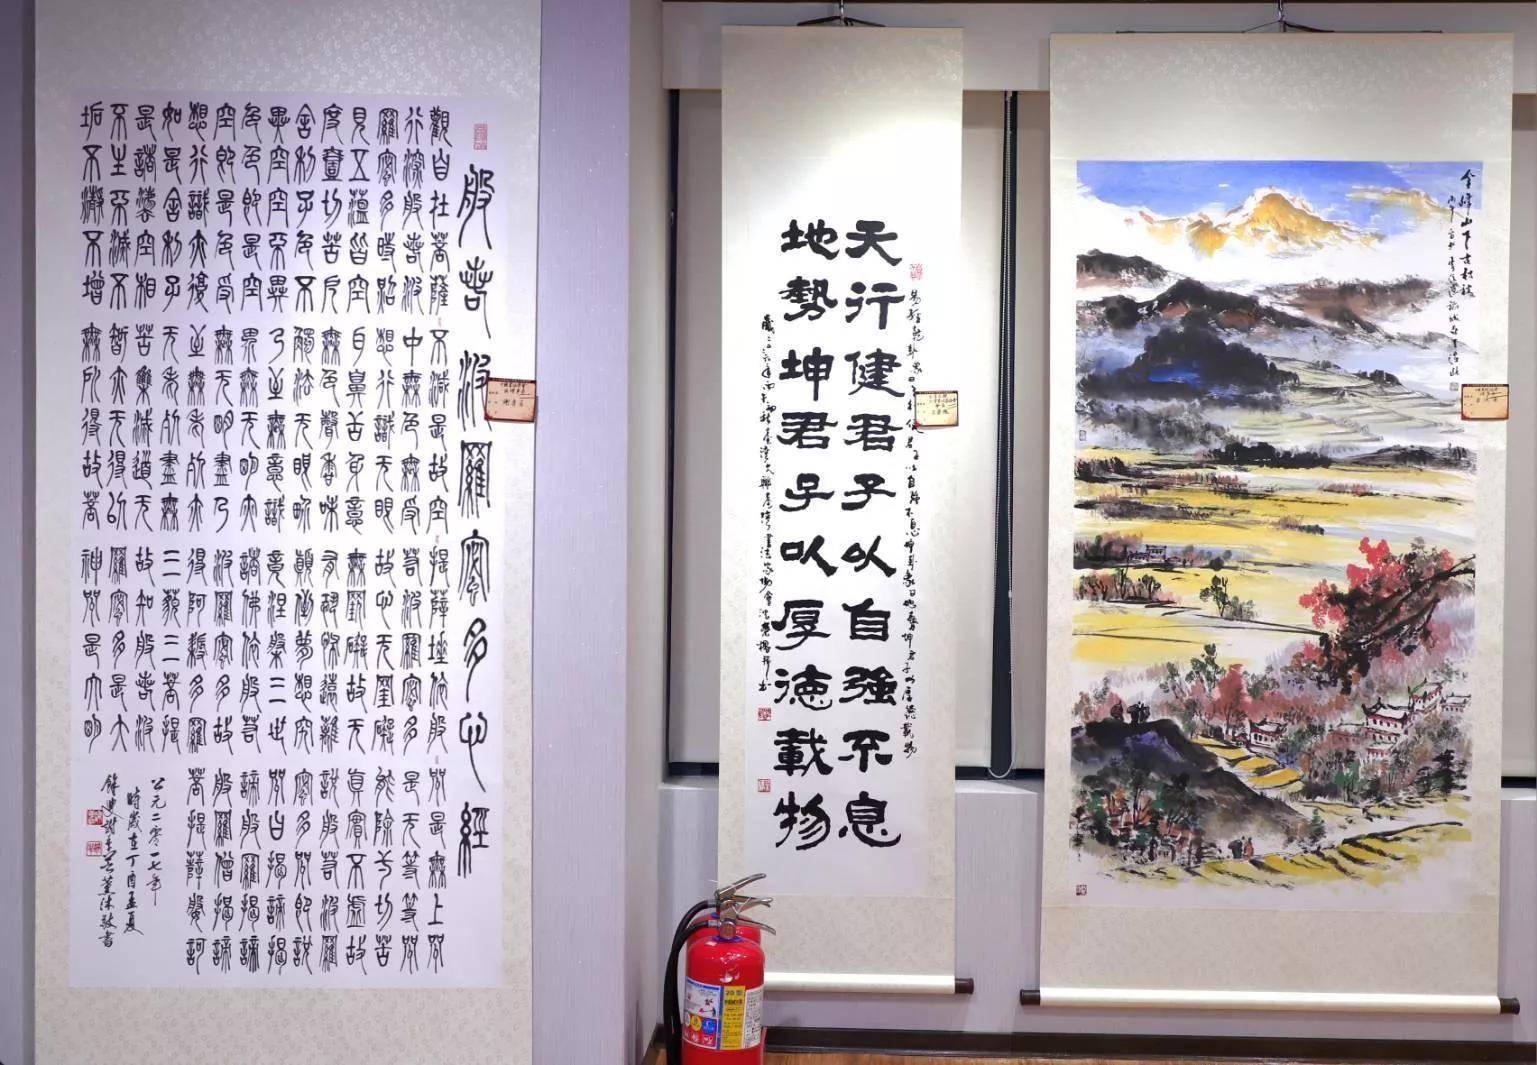 般若波羅密多心經
觀自在菩薩
行深般若波
羅密多時照
見五蘊皆空
度一切苦厄
舍利子色不
異空空不異
色色即是空
空即是色受
想行識亦復
如是舍利子
是諸法空相
不生不滅不
垢不淨不增
不減是故空
中無色無受
想行識无眼
耳鼻舌身意
無色聲香味
觸法无眼界
乃至無意識
界無无明亦
無无明盡乃
至無老死亦
无老死盡無
苦集滅道无
智亦无得以
無所得故菩
提薩埵依般
若波羅密多
故心无罣礙
無罣礙故无
有恐怖遠離
顛倒夢想究
竟涅槃三世
諸佛依般若
波羅密多故
得阿耨多羅
三藐三菩提
故知般若波
羅密多是大
神咒是大明
咒是無上咒
是无等等咒
能除一切苦
真實不虛故
說般若波羅
密多咒即說
咒曰揭諦揭
諦般羅揭諦
般羅僧揭諦
菩提薩婆訶
公元二零一七年
時歲在丁酉孟夏
薰沐敬書
易經乾卦象曰天行健君子以自強不息坤卦象曰地勢坤君子以厚德載物
天行健君子以自強不息
地勢坤君子以厚德載物
金峰山下古村落